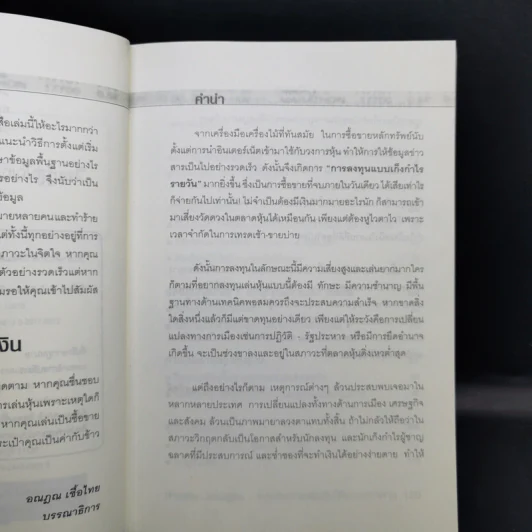 สือเล่มนี้ให้อะไรมากกว่า
แนะนำวิธีการตั้งแต่เริ่ม
ษาข้อมูลพื้นฐานอย่างไร
รอย่างไร จึงนับว่าเป็น
ข้อมูล
มายหลายคนและทำร้าย
แต่ทั้งนี้ทุกอย่างอยู่ที่การ
ภาวะในจิตใจ หากคุณ
ตัวอย่างรวดเร็วแต่หาก
มรอให้คุณเข้าไปสัมผัส
งิน
ติดตาม หากคุณชื่นชอบ
การเล่นหุ้นเพราะเหตุใดก็
หากคุณเล่นเป็นซื้อขาย
ระเป๋าคุณเป็นค่ากับข้าว
อณฏณ เชื้อไทย
บรรณาธิการ
คำนำ
จากเครื่องมือเครื่องไม้ที่ทันสมัย ในการซื้อขายหลักทรัพย์นับ
ตั้งแต่การนำอินเตอร์เน็ตเข้ามาใช้กับวงการหุ้น ทำให้การให้ข้อมูลข่าว
สารเป็นไปอย่างรวดเร็ว ดังนั้นจึงเกิดการ "การลงทุนแบบเก็งกำไร
รายวัน" มากยิ่งขึ้น ซึ่งเป็นการซื้อขายที่จบภายในวันเดียว ได้เสียเท่าไร
ก็จ่ายกันไปเท่านั้น! ไม่จำเป็นต้องมีเงินมากมายอะไรนัก ก็สามารถเข้า
มาเสี่ยงวัดดวงในตลาดหุ้นได้เหมือนกัน เพียงแต่ต้องหูไวตาไว เพราะ
เวลาจำกัดในการเทรดเช้า-ขายบ่าย
ดังนั้นการลงทุนในลักษณะนี้มีความเสี่ยงสูงและเล่นยากมากใคร
ก็ตามที่อยากลงทุนเล่นหุ้นแบบนี้ต้องมี ทักษะ มีความชำนาญ มีพื้น
ฐานทางด้านเทคนิคพอสมควรถึงจะประสบความสำเร็จ หากขาดสิ่ง
ใดสิ่งหนึ่งแล้วก็มีแต่ขาดทุนอย่างเดียว เพียงแต่ให้ระวังคือการเปลี่ยน
แปลงทางการเมืองเช่นการปฏิวัติ - รัฐประหาร หรือมีการยึดอำนาจ
เกิดขึ้น จะเป็นช่วงขาลงและอยู่ในสภาวะที่ตลาดหุ้นดิ่งเหวต่ำสุด
แต่ถึงอย่างไรก็ตาม เหตุการณ์ต่างๆ ล้วนประสบพบเจอมาใน
หลากหลายประเทศ การเปลี่ยนแปลงทั้งทางด้านการเมือง เศรษฐกิจ
และสังคม ล้วนเป็นภาพมายาลวงตาแทบทั้งสิ้น ถ้าไม่กลัวให้ถือว่าใน
สภาวะวิกฤตกลับเป็นโอกาสสำหรับนักลงทุน และนักเก็งกำไรผู้ชาญ
ฉลาดที่มีประสบการณ์ และช่ำชองที่จะทำเงินได้อย่างง่ายดาย ทำให้